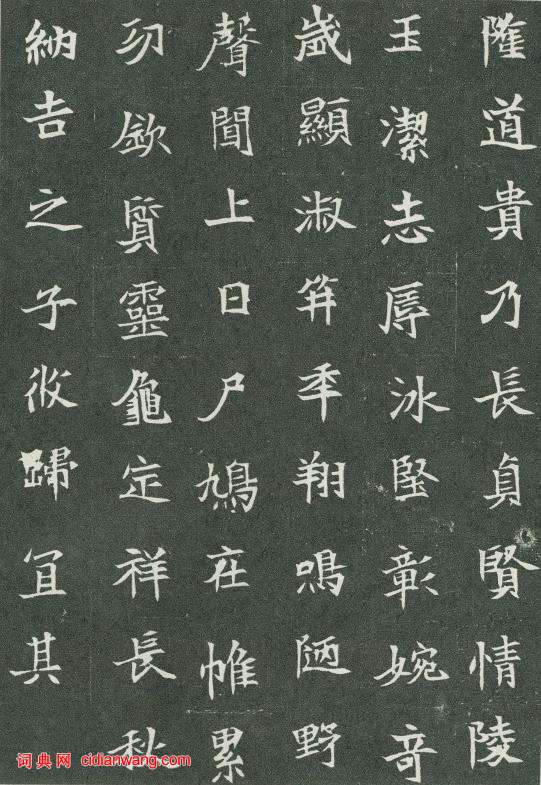 隆道貴乃長貞賢情陵
玉潔志厚冰堅彰婉奇
歲顯淑笄年翔鳴陋野
聲聞上日尸鳩在帷累
質靈龜定祥長秋
納吉之子攸歸宜其
词典网 cidianwang.com